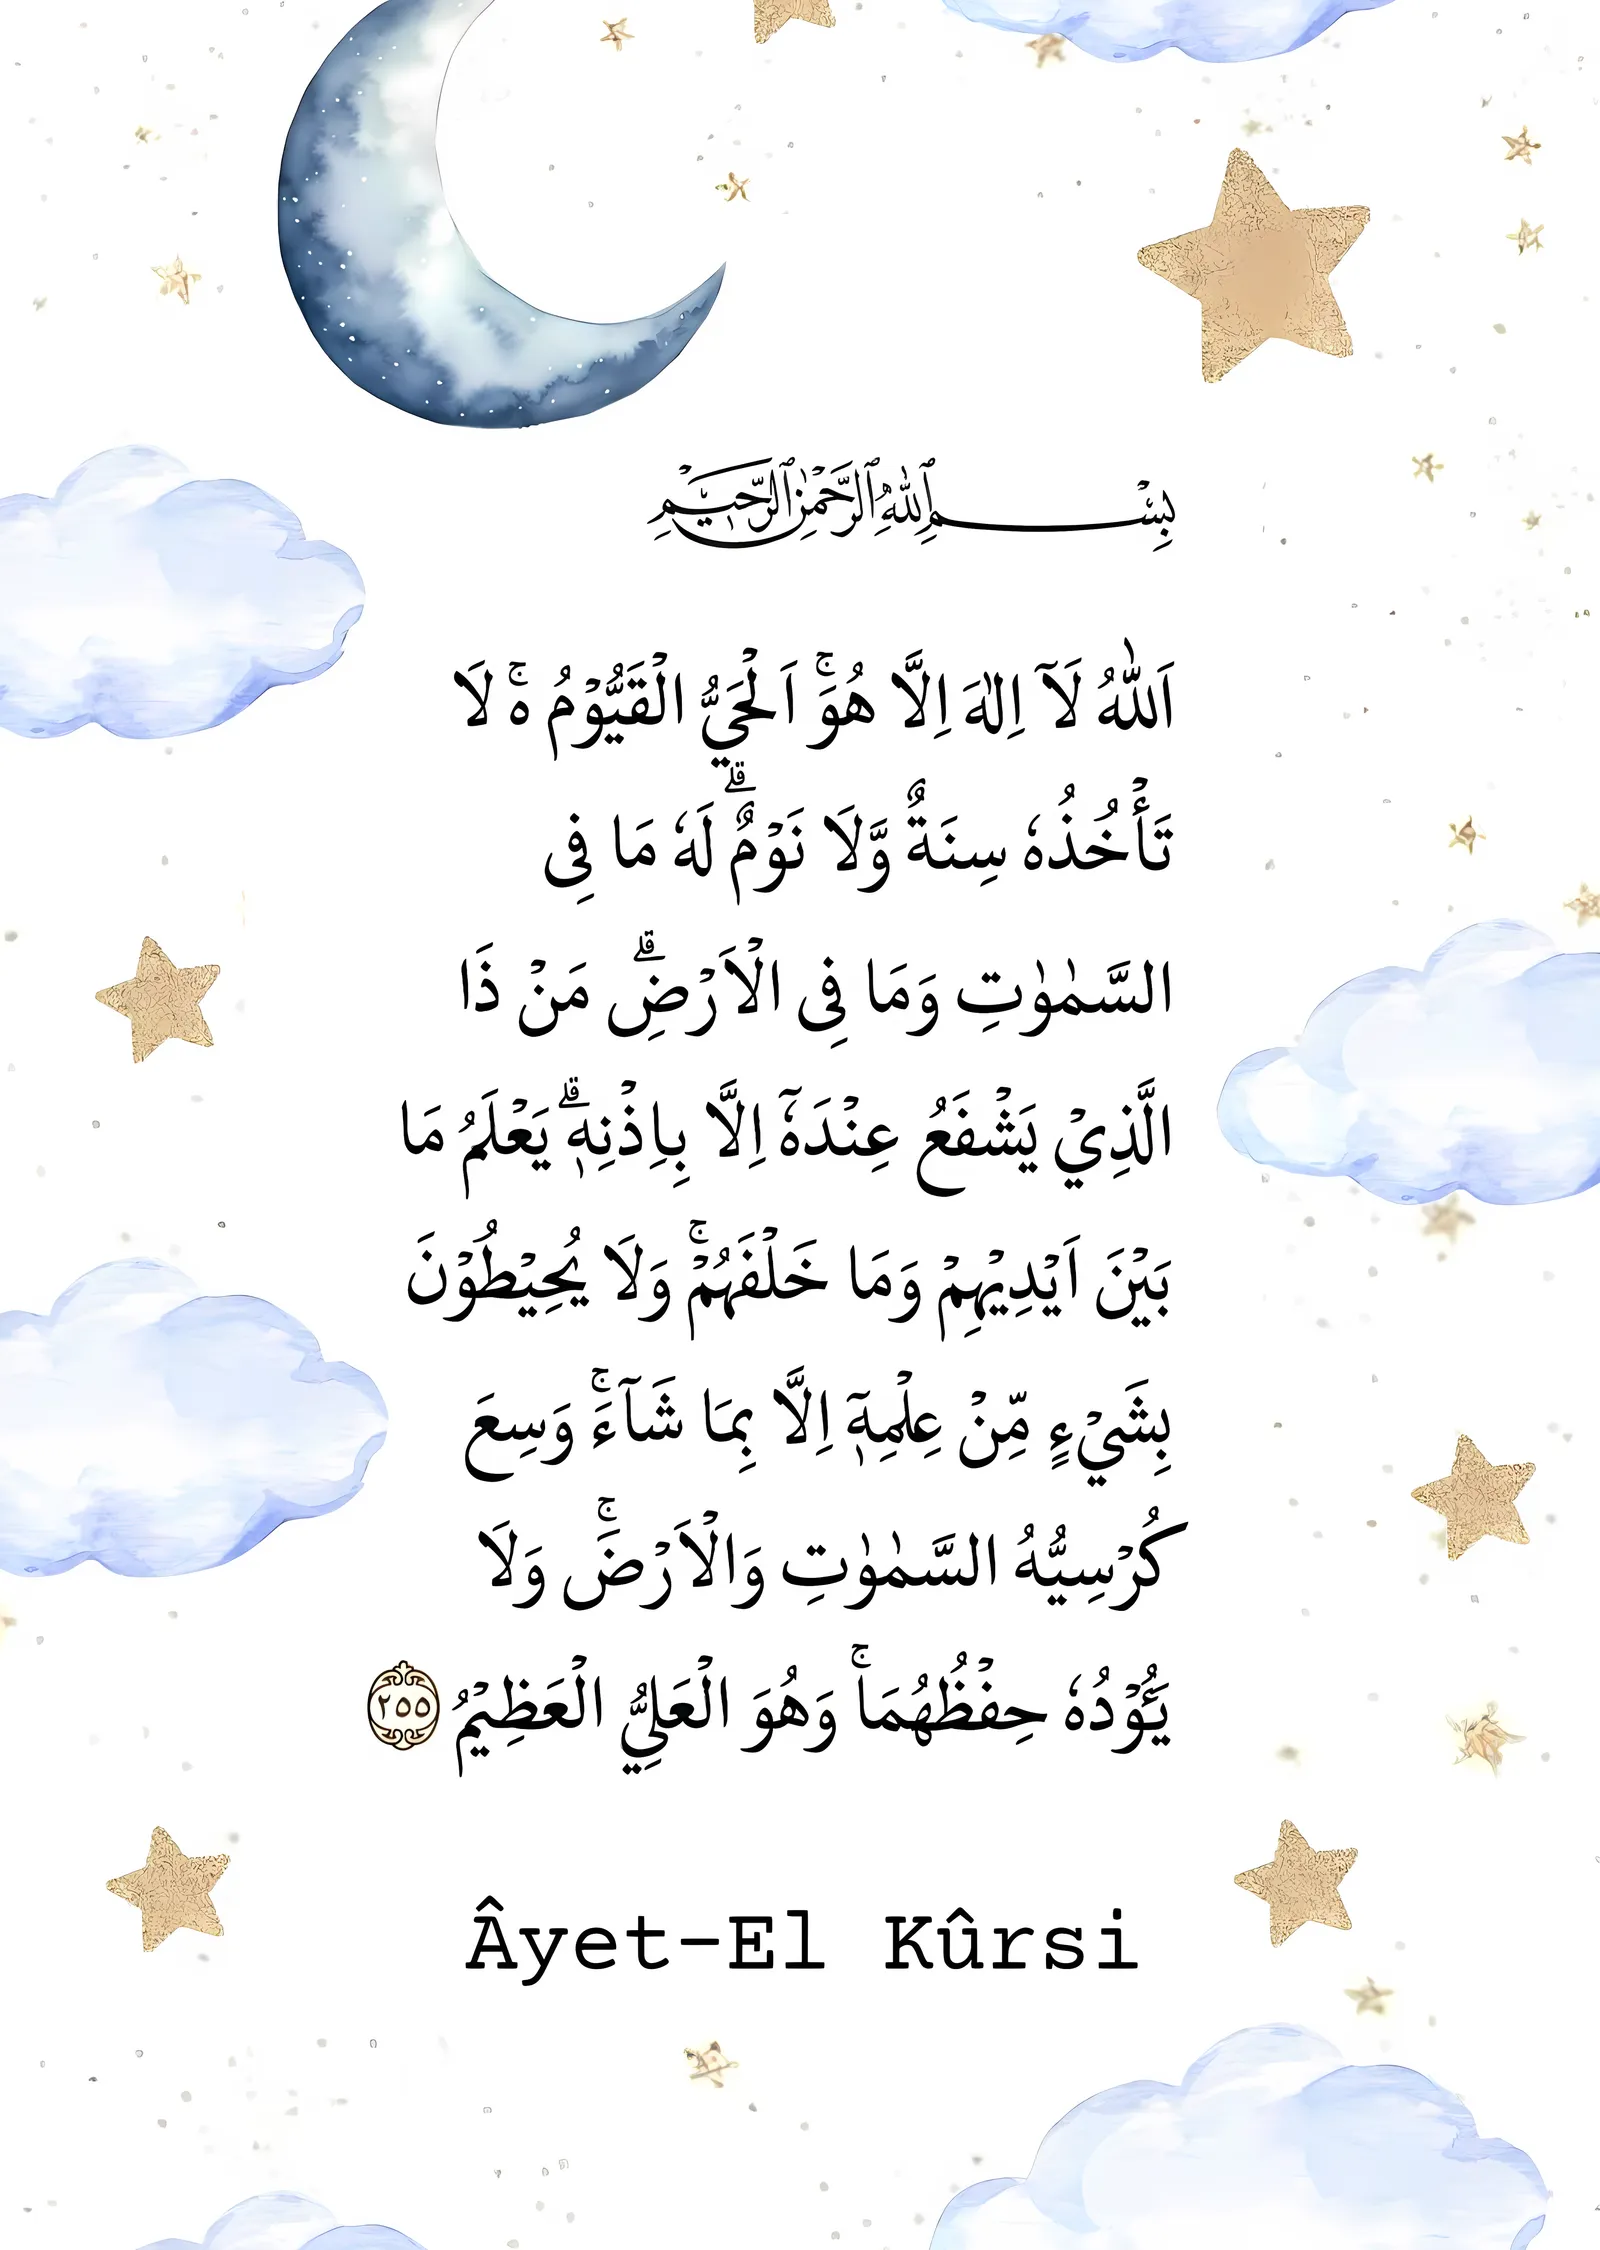 بِسْمِ ٱللَّهِ ٱلرَّحْمَٰنِ ٱلرَّحِيمِ
اَللّٰهُ لَآ اِلٰهَ اِلَّا هُوَۚ اَلْحَيُّ الْقَيُّوْمُ ەۚ لَا
تَأْخُذُهٗ سِنَةٌ وَّلَا نَوْمٌۗ لَهٗ مَا فِى
السَّمٰوٰتِ وَمَا فِى الْاَرْضِۗ مَنْ ذَا
الَّذِيْ يَشْفَعُ عِنْدَهٗٓ اِلَّا بِاِذْنِهٖۗ يَعْلَمُ مَا
بَيْنَ اَيْدِيْهِمْ وَمَا خَلْفَهُمْۚ وَلَا يُحِيْطُوْنَ
بِشَيْءٍ مِّنْ عِلْمِهٖٓ اِلَّا بِمَا شَآءَۚ وَسِعَ
كُرْسِيُّهُ السَّمٰوٰتِ وَالْاَرْضَۚ وَلَا
يَـُٔوْدُهٗ حِفْظُهُمَاۚ وَهُوَ الْعَلِيُّ الْعَظِيْمُ ٢٥٥
Âyet-El Kûrsi